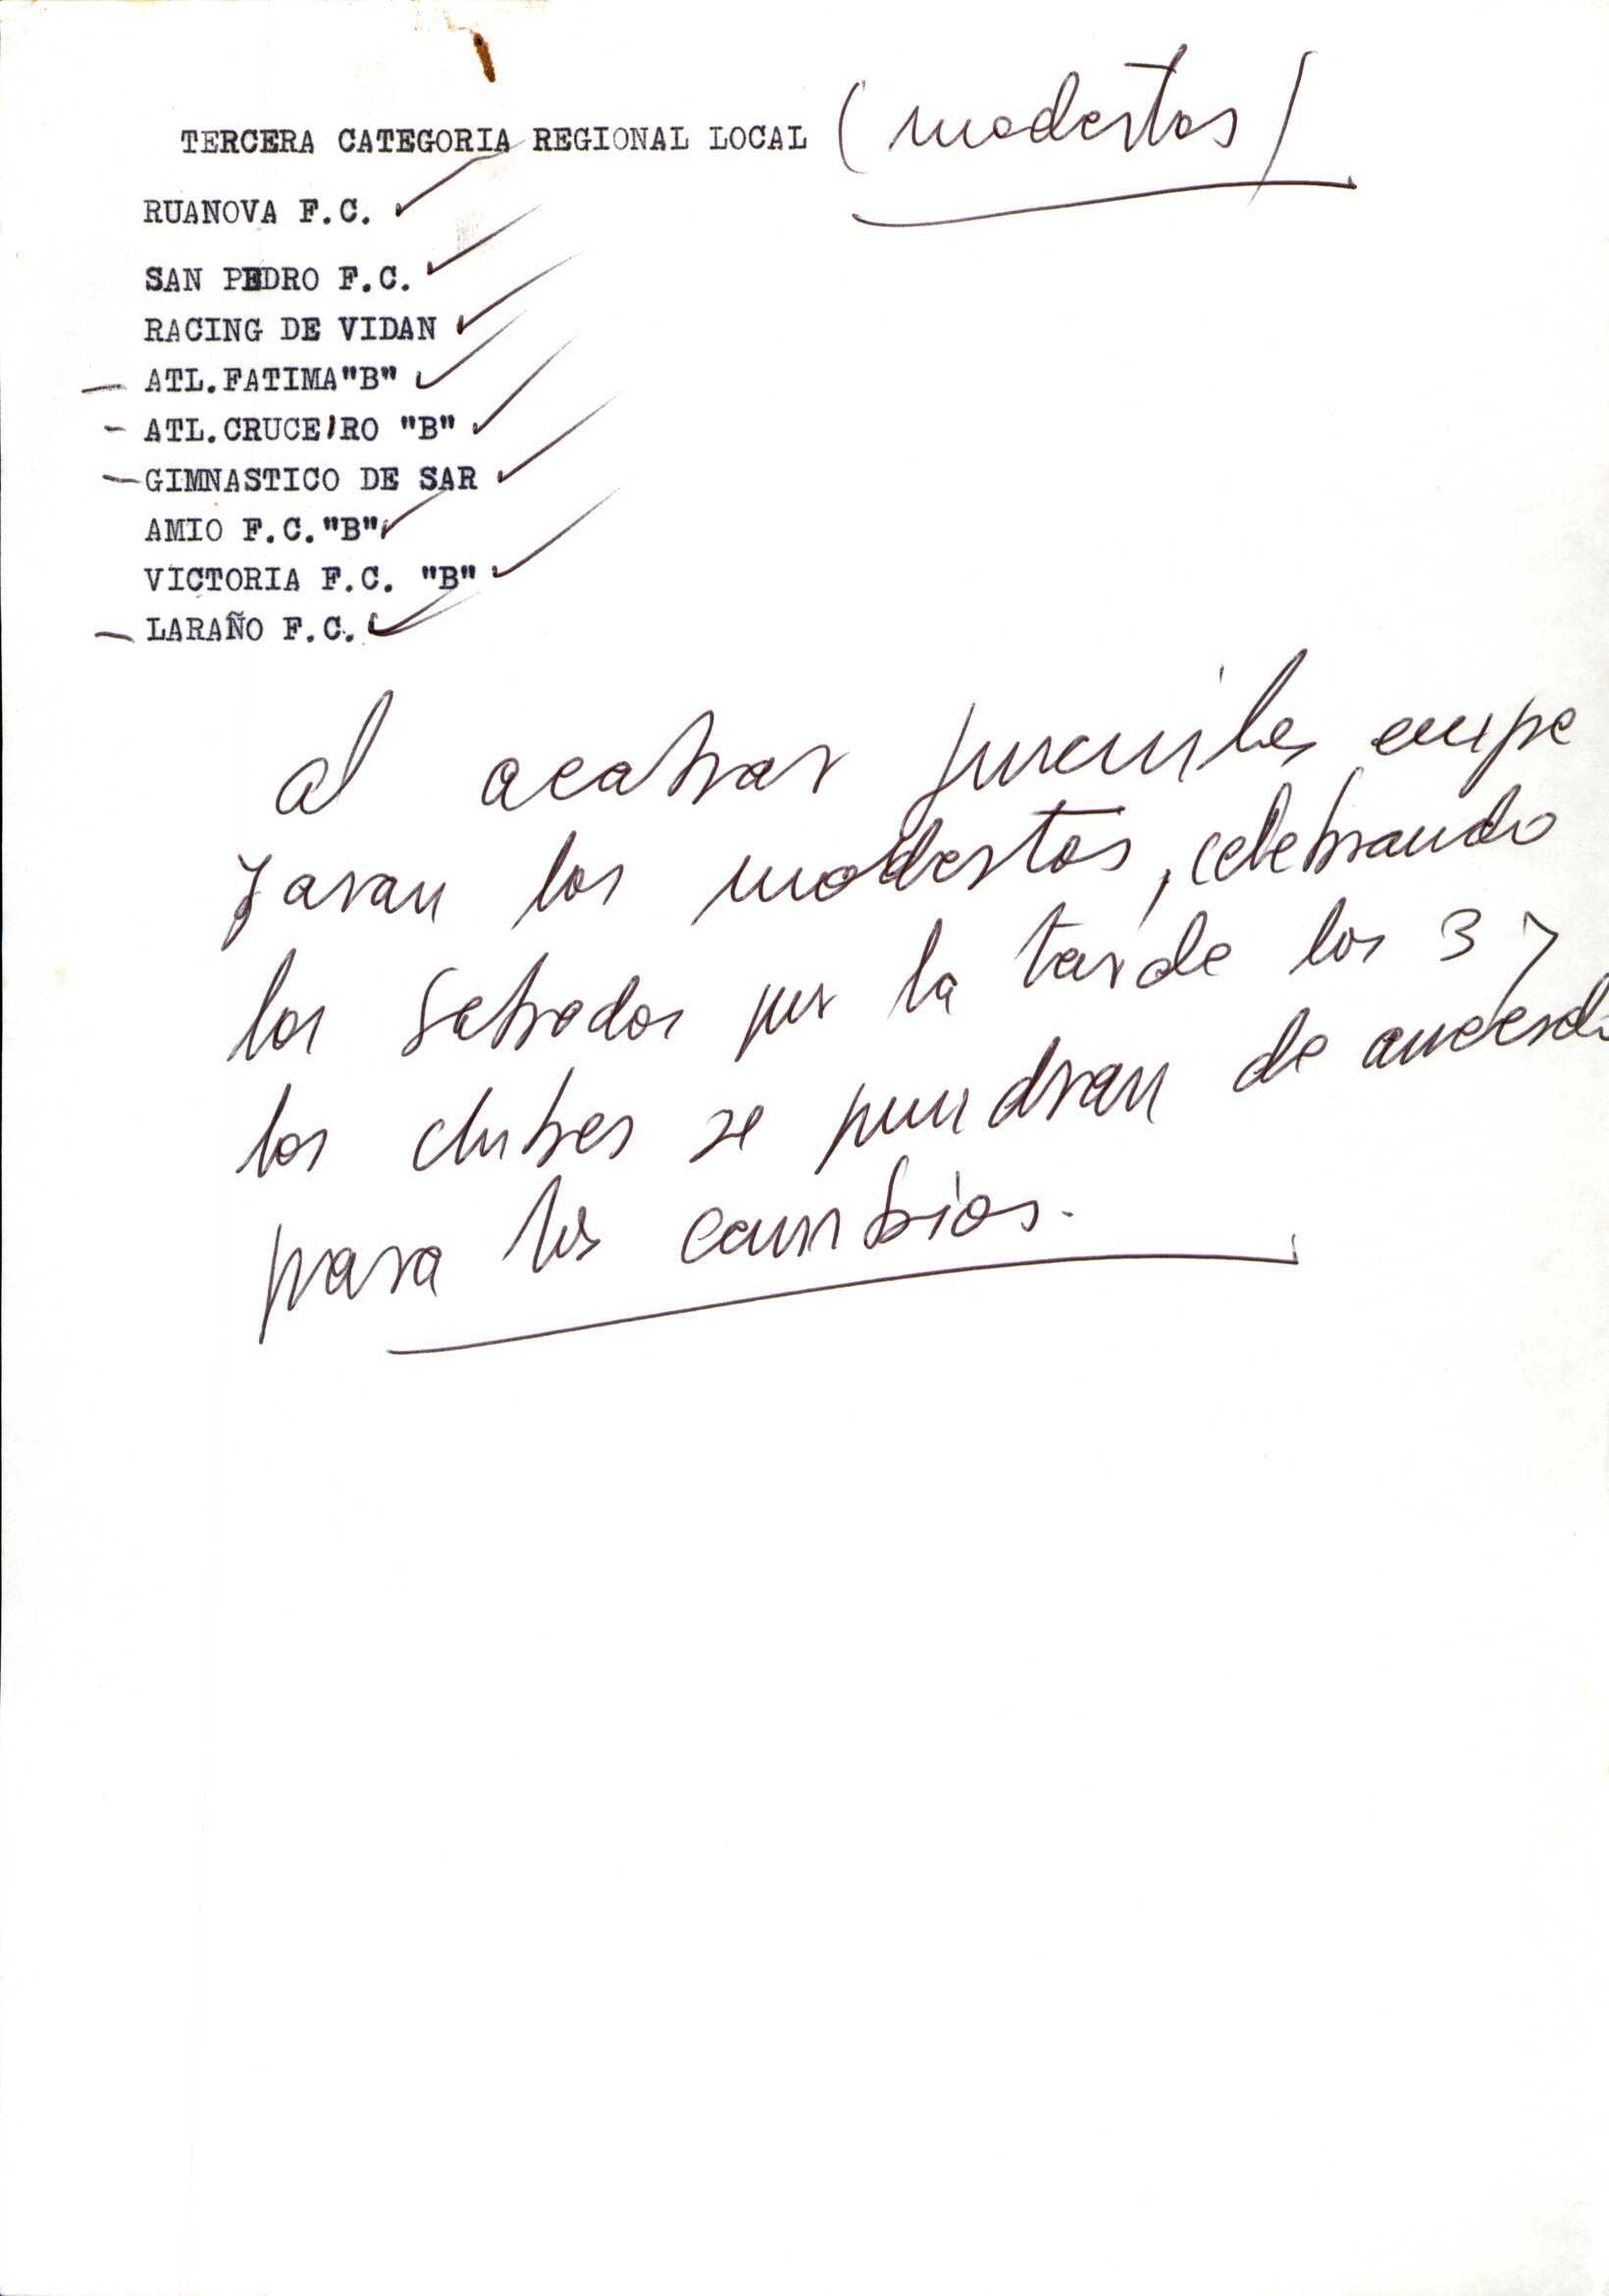 TERCERA CATEGORIA REGIONAL LOCAL (modestos)
RUANOVA F.C.
SAN PEDRO F.C.
RACING DE VIDAN
— ATL.FATIMA"B"
- ATL.CRUCEIRO "B"
— GIMNASTICO DE SAR
AMIO F.C."B"
VICTORIA F.C. "B"
— LARAÑO F.C.
al acabar juveniles empe
zaran los modestos, celebrando
los sabados por la tarde los 3 y
los clubes se pundran de acuerdo
para los cambios.